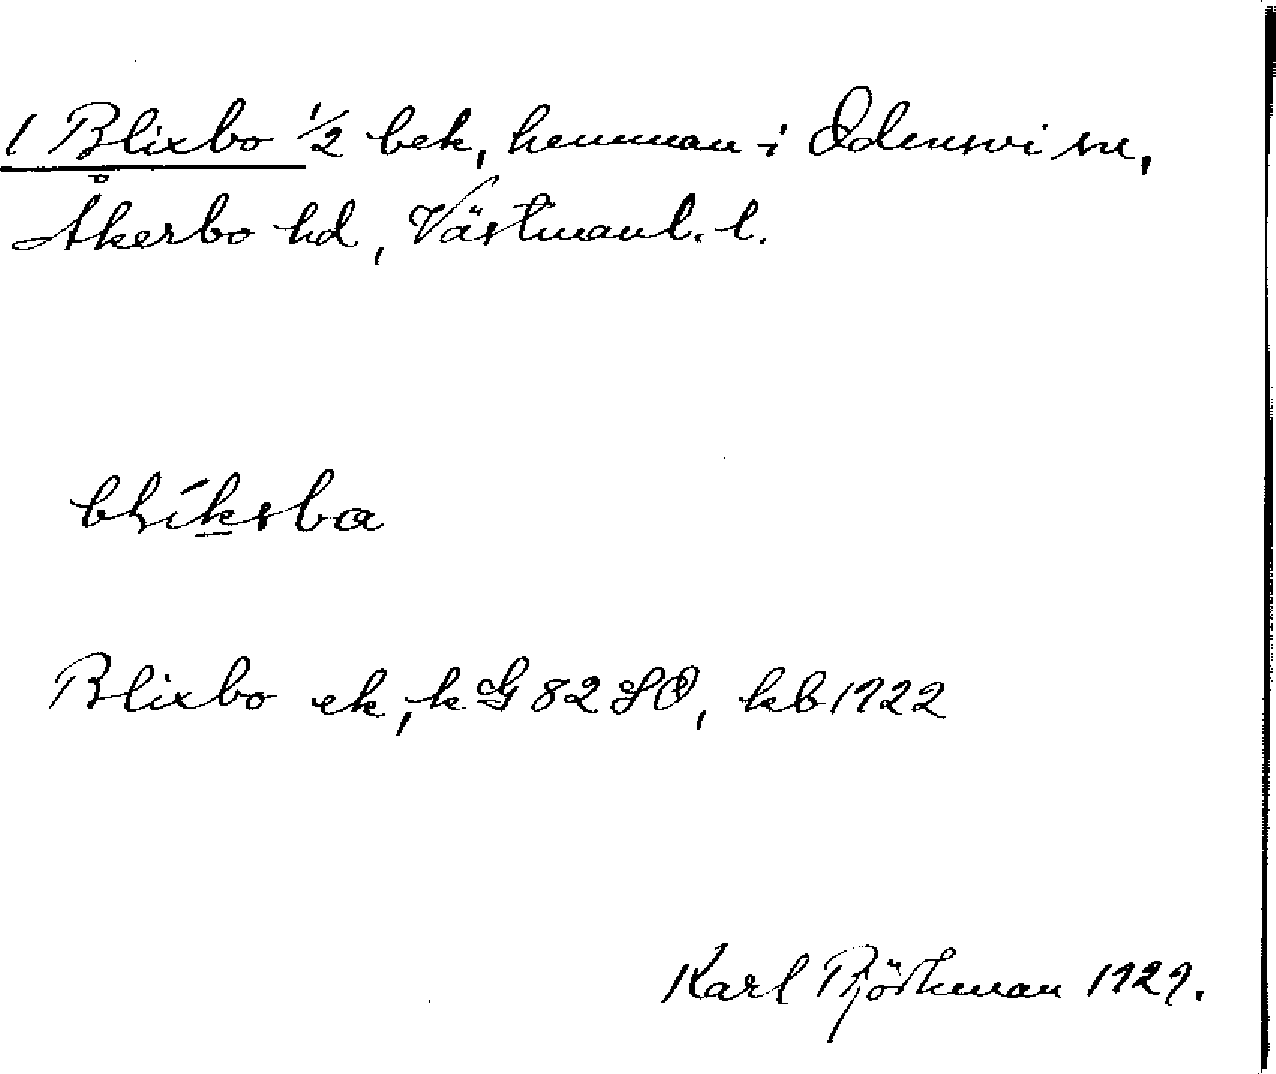 1 Blixbo ½ bek, hemman i Odensvi sn,
Åkerbo hd, Västmanl. l.
blíksba
Blixbo ek, k G 82 SO, kb 1922
Karl Björkman 1929.